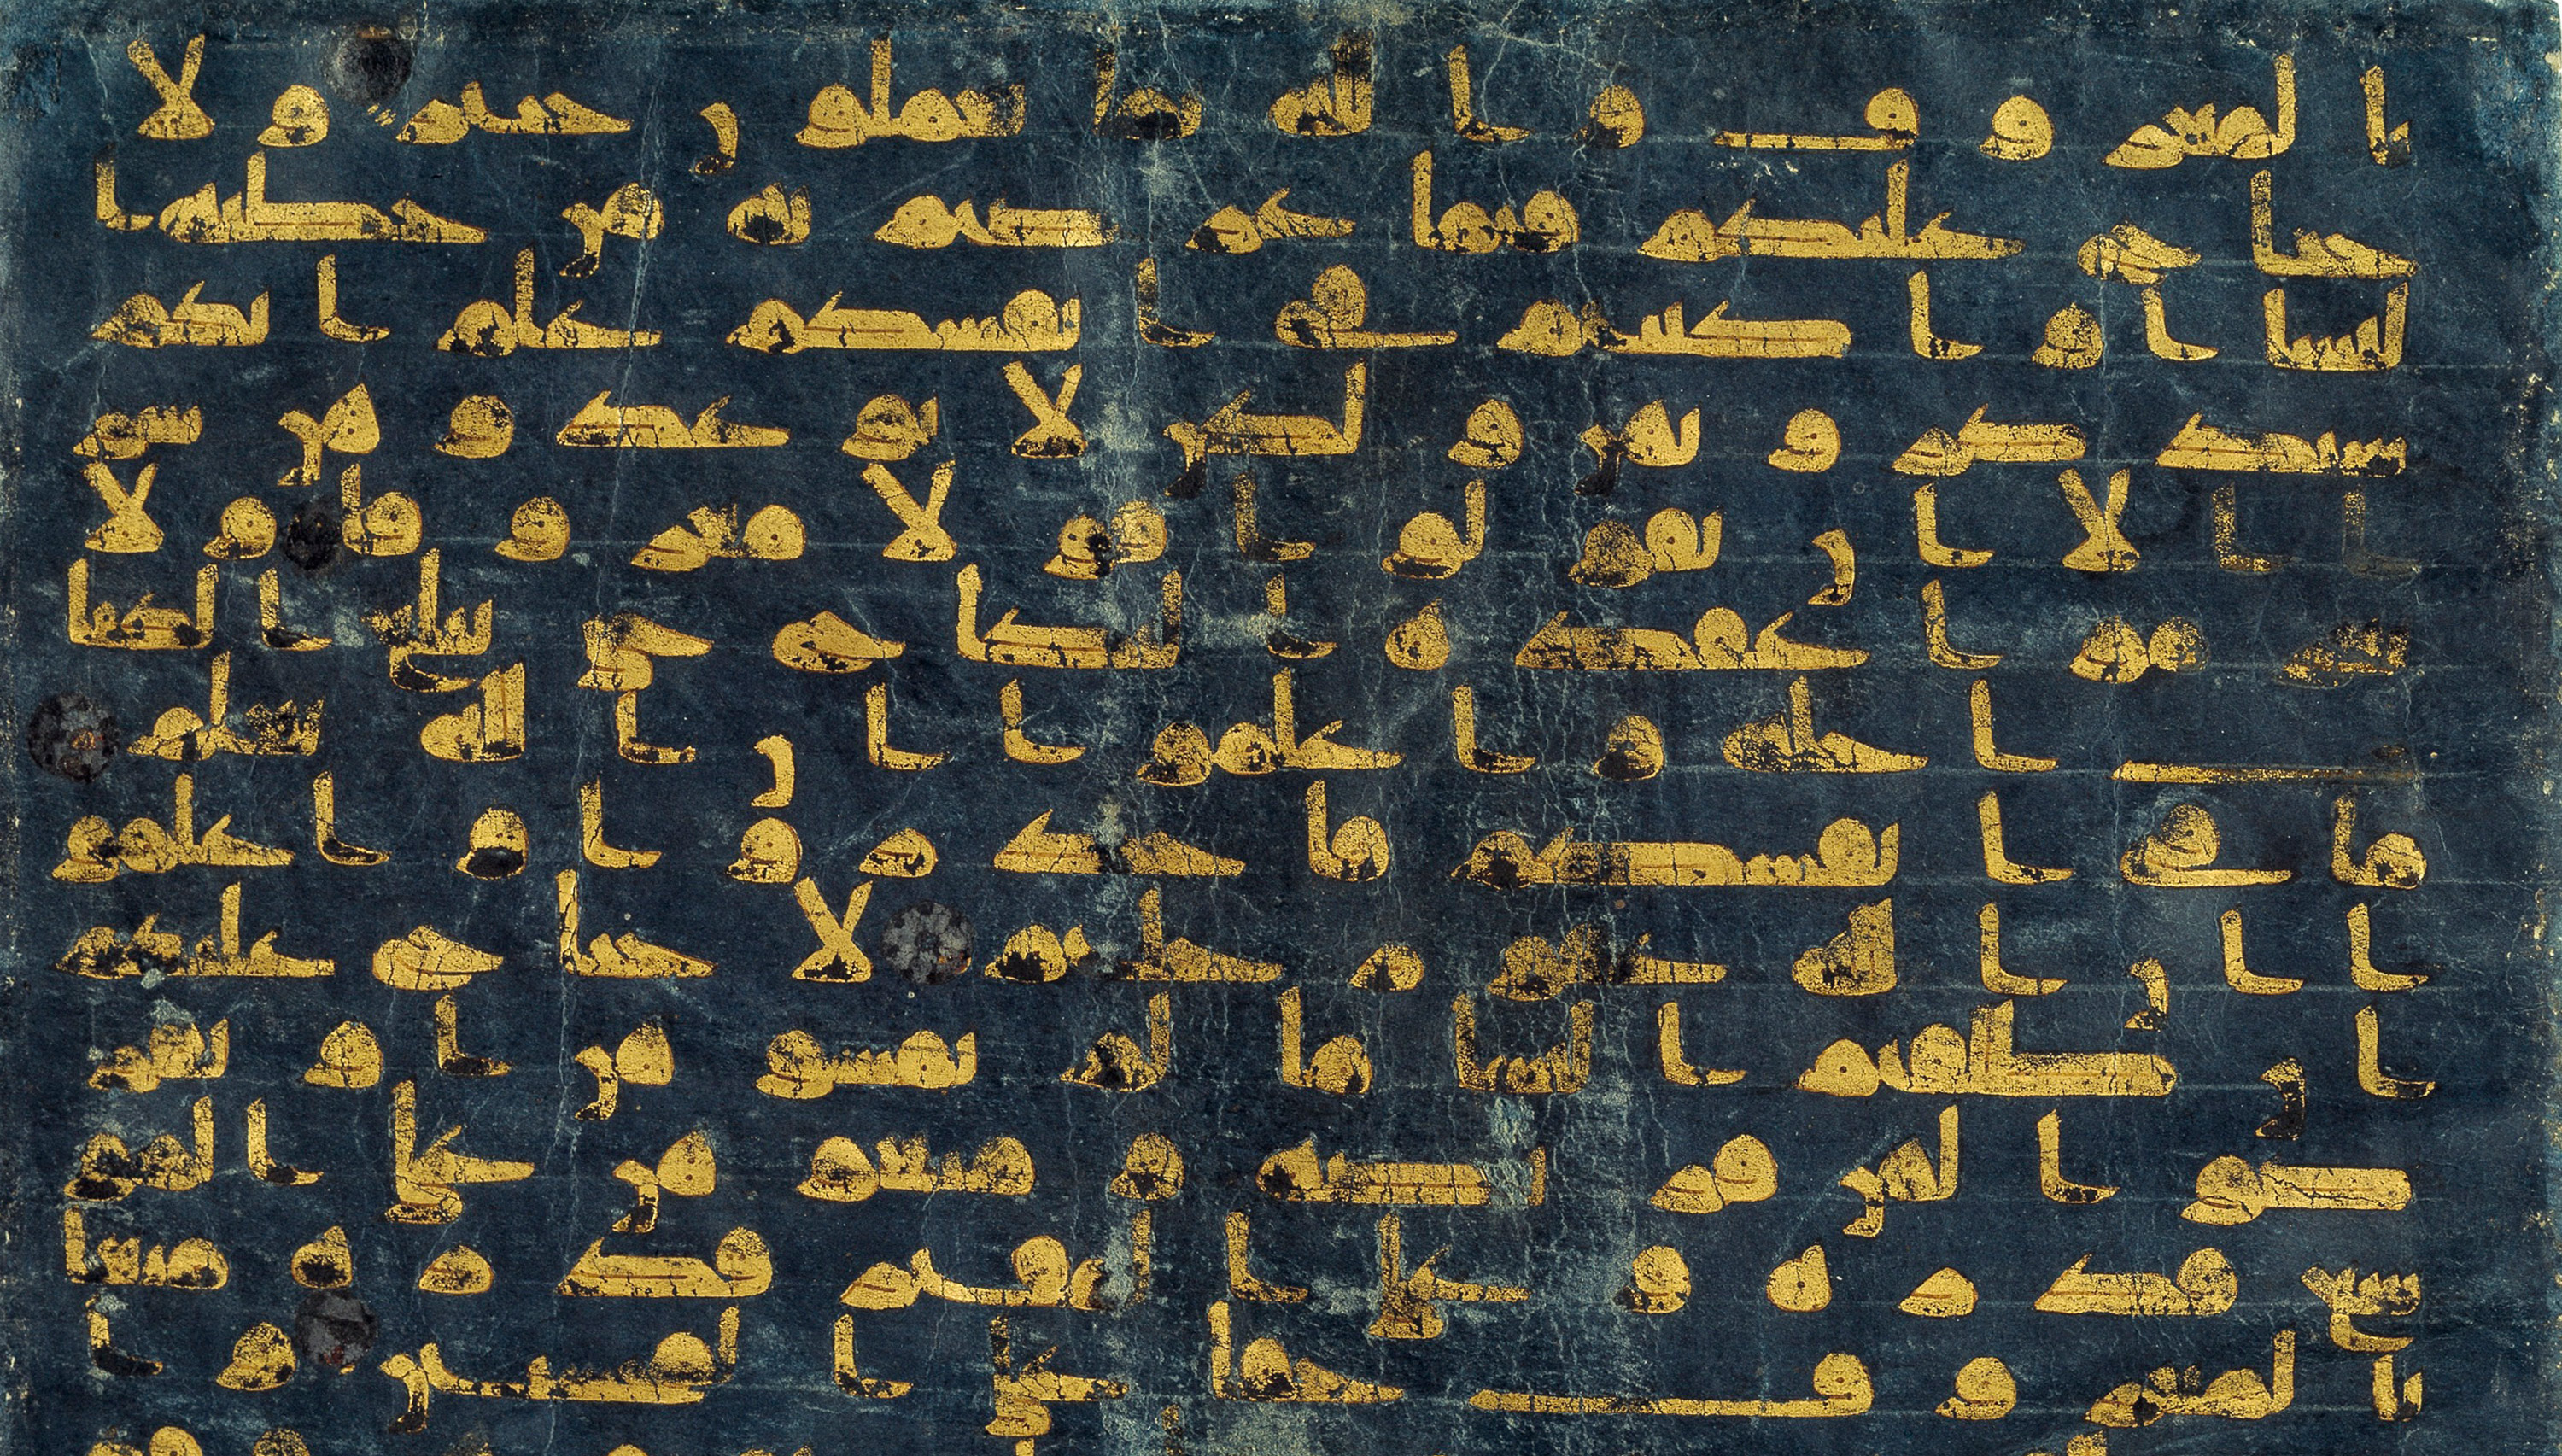 بالمعروف والله بما تعملون خبير ولا
جناح عليكم فيما عرضتم به من خطبة ا
لنسا او اكننتم في انفسكم علم انكم
ستذكرونهن ولكن لا تواعدوهن سر
ا الا ان تقولوا قولا معروفا ولا
تعزموا عقدة النكاح حتى يبلغ الكتا
ب اجله واعلموا ان الله يعلم
ما في انفسكم فاحذروه واعلمو
ا ان الله غفور حليم لا جناح عليكم
ان طلقتم النسا ما لم تمسوهن او تفر
ضوا لهن فريضة ومتعوهن على الموس
ع قدره وعلى المقتر قدره متعا
بالمعروف حقا على المحسنين وا